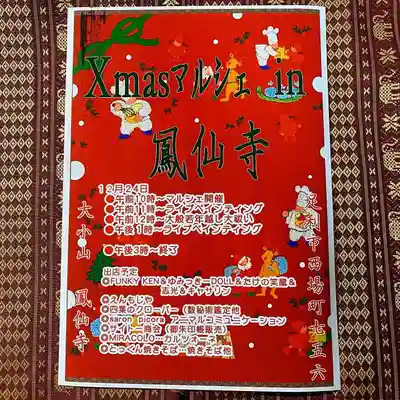 Xmasマルシェ in
鳳仙寺
12月24日
●午前10時～マルシェ開催
●午前11時～ライブペインティング
●午前12時～大般若年越し大祓い
●午後1時～ライブペインティング
●午後3時～終了
出店予定
FUNKY KEN&ゆみっきーDOLL&たけの笑龍&
辰光&キャサリン
えんもじや
四葉のクローバー(数秘術鑑定他
saron picora アニマルコミュニケーション
サイトー商会(御朱印帳販売)
MIRACOLO…カルツォーネ
とっくん焼きそば…焼きそば他
足利市西場町七五六
大小山 鳳仙寺